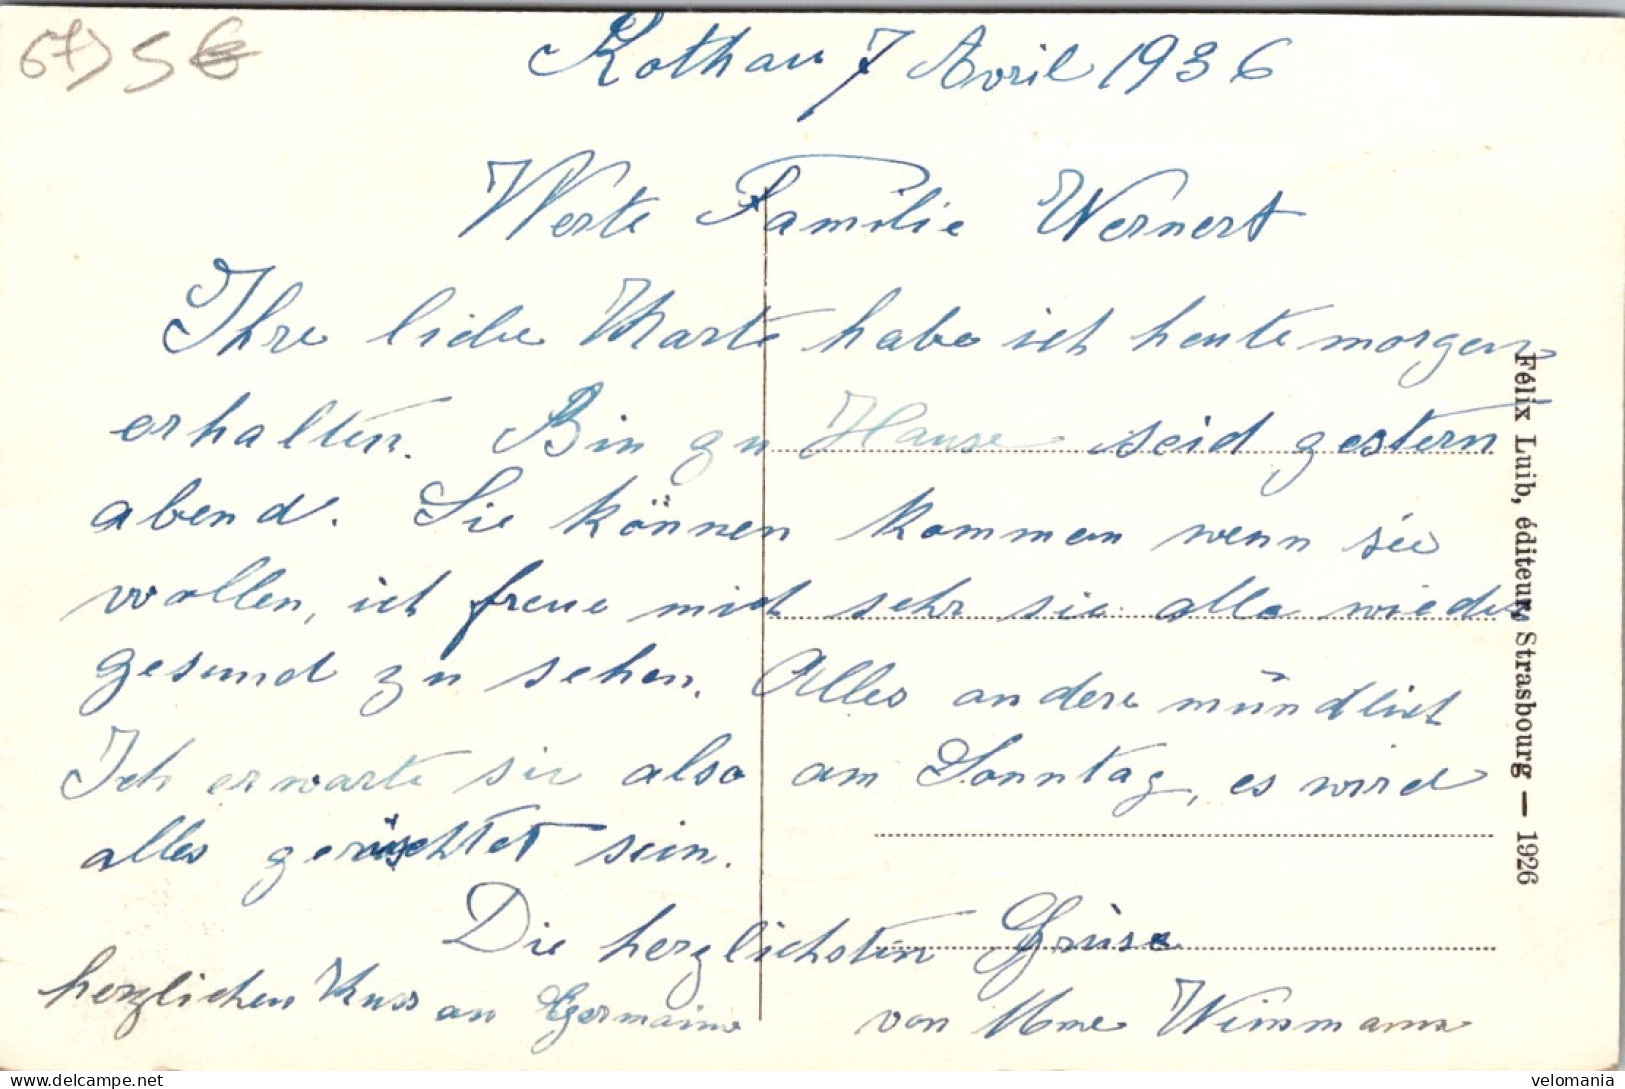 67) 5€
Rothau 7 Avril 1936
Werte Familie Wernert
Ihre liebe Karte habe ich heute morgen
erhalten. Bin zu Hause seid gestern
abend. Sie können kommen wenn sie
wollen, ich freue mich sehr sie alle wieder
gesund zu sehen. Alles andere mündlich
Ich erwarte sie also am Sonntag, es wird
alles gerüschtet sein.
Die herzlichsten Grüse
herzlichen Kuss an Germaine
von Mme
Félix Luib, éditeur, Strasbourg — 1926
delcampe.net
velomania